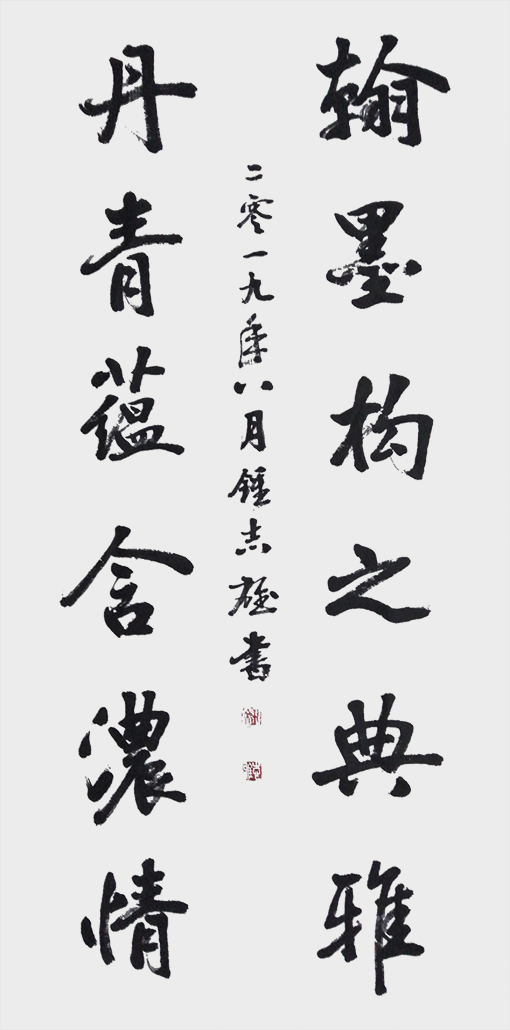 翰墨构之典雅
丹青蕴含濃情
二零一九年八月鍾志雄書